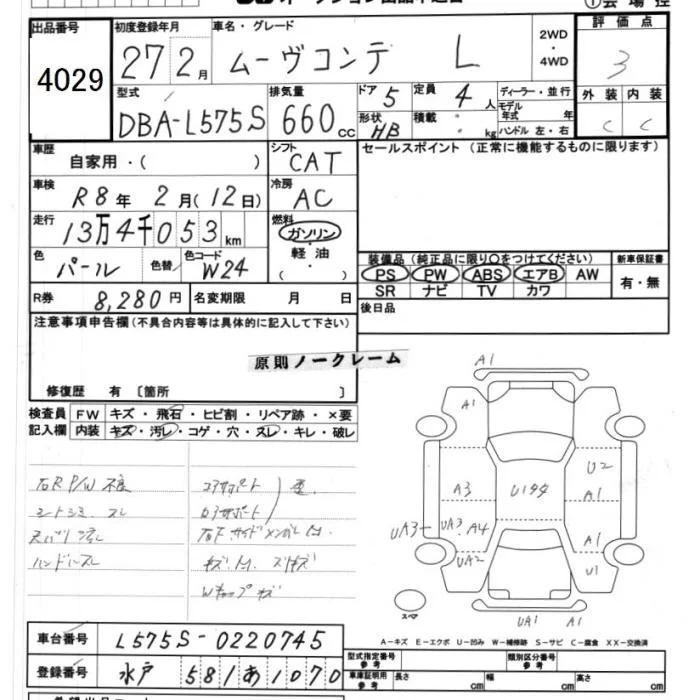 出品番号
4029
初度登録年月
27年2月
車名・グレード
ムーヴコンテ L
2WD
・
4WD
評価点
3
外装 内装
C C
型式
DBA-L575S
排気量
660 cc
ドア 5
形状 HB
定員 4人
積載 kg
ディーラー・並行
モデル年式 年
ハンドル 左・右
車歴
自家用・( )
シフト
CAT
セールスポイント (正常に機能するものに限ります)
車検
R8年 2月(12日)
冷房
AC
走行
13万4千053km
燃料
ガソリン
・
軽油
( )
色
パール
色替
色コード
W24
装備品 (純正品に限り○をつけてください)
PS PW ABS エアB AW
SR ナビ TV カワ
新車保証書
有・無
R券 8,280円
名変期限 月 日
後日品
注意事項申告欄(不具合内容等は具体的に記入して下さい)
原則ノークレーム
修復歴 有 〔箇所 〕
検査員
記入欄
FW キズ・飛石・ヒビ割・リペア跡・×要
内装 キズ・汚レ・コゲ・穴・スレ・キレ・破レ
右R P/W 不良
シートシミ スレ
天バリ汚レ
ハンドルスレ
コアサポート
ロアサポート
W キャップ キズ
A1
A1
U2
A3
A1
UA3
UA3
A4
A1
UA2
U1
スペア
UA1
A1
A-キズ E-エクボ U-凹み W-補修跡 S-サビ C-腐食 XX-交換済
車台番号
L575S-0220745
型式指定番号
参考
類別区分番号
参考
登録番号
水戸 581 あ 1070
車庫証明用
参考
長さ cm
幅 cm
高さ cm